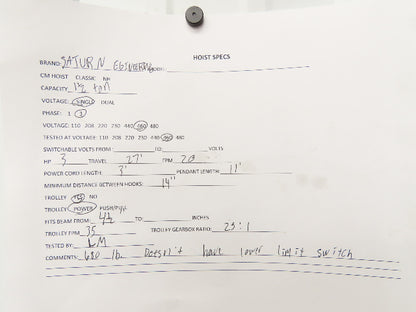 HOIST SPECS
BRAND: SATURN EGINEERING MODEL:
CM HOIST CLASSIC NH
CAPACITY 1½ ton
VOLTAGE: SINGLE DUAL
PHASE: 1 3
VOLTAGE: 110 208 220 230 440 460 480
TESTED AT VOLTAGE: 110 208 220 230 440 460 480
SWITCHABLE VOLTS FROM: TO: VOLTS
HP 3 TRAVEL 27' FPM 20
POWER CORD LENGTH: 3' PENDANT LENGTH: 11'
MINIMUM DISTANCE BETWEEN HOOKS: 14"
TROLLEY YES NO
TROLLEY POWER PUSH/PULL
FITS BEAM FROM: 4½ TO: INCHES
TROLLEY FPM 35 TROLLEY GEARBOX RATIO: 23:1
TESTED BY: LM
COMMENTS: 680 lb. Doesn't have lower limit switch